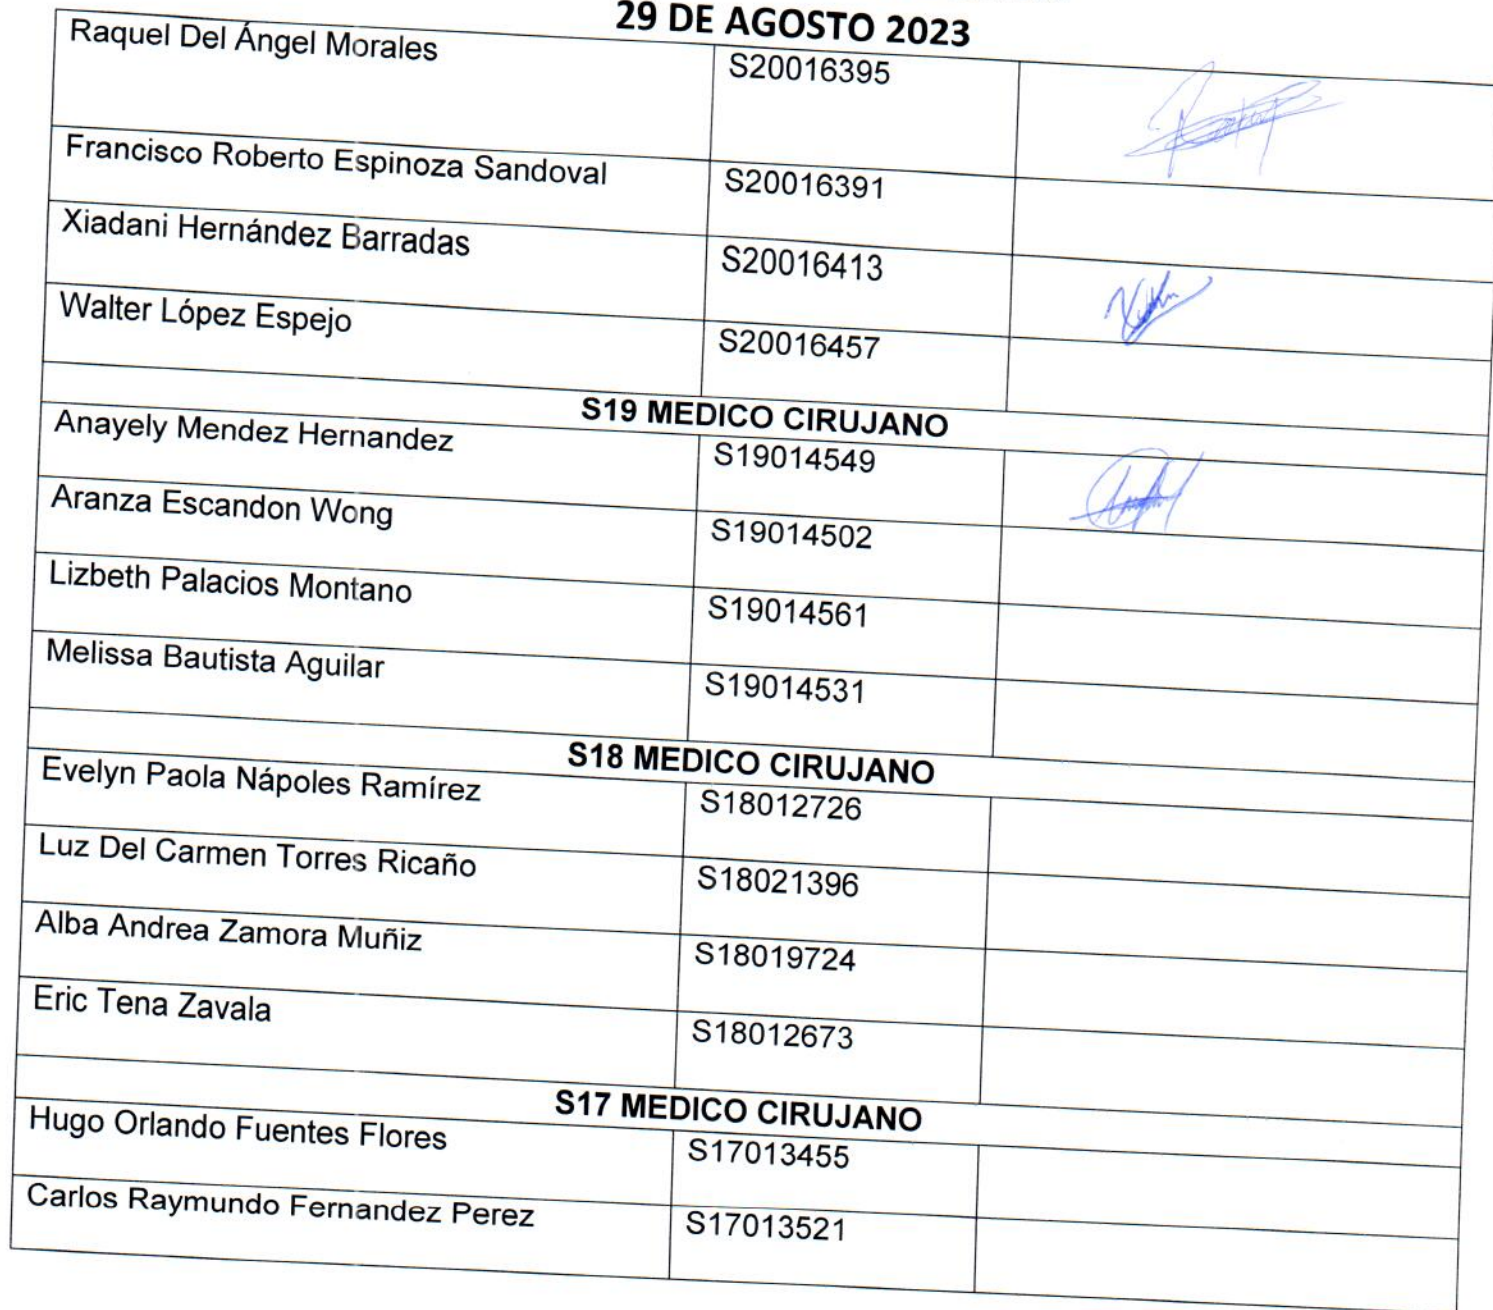 29 DE AGOSTO 2023
Raquel Del Ángel Morales S20016395
Francisco Roberto Espinoza Sandoval S20016391
Xiadani Hernández Barradas S20016413
Walter López Espejo S20016457
S19 MEDICO CIRUJANO
Anayely Mendez Hernandez S19014549
Aranza Escandon Wong S19014502
Lizbeth Palacios Montano S19014561
Melissa Bautista Aguilar S19014531
S18 MEDICO CIRUJANO
Evelyn Paola Nápoles Ramírez S18012726
Luz Del Carmen Torres Ricaño S18021396
Alba Andrea Zamora Muñiz S18019724
Eric Tena Zavala S18012673
S17 MEDICO CIRUJANO
Hugo Orlando Fuentes Flores S17013455
Carlos Raymundo Fernandez Perez S17013521